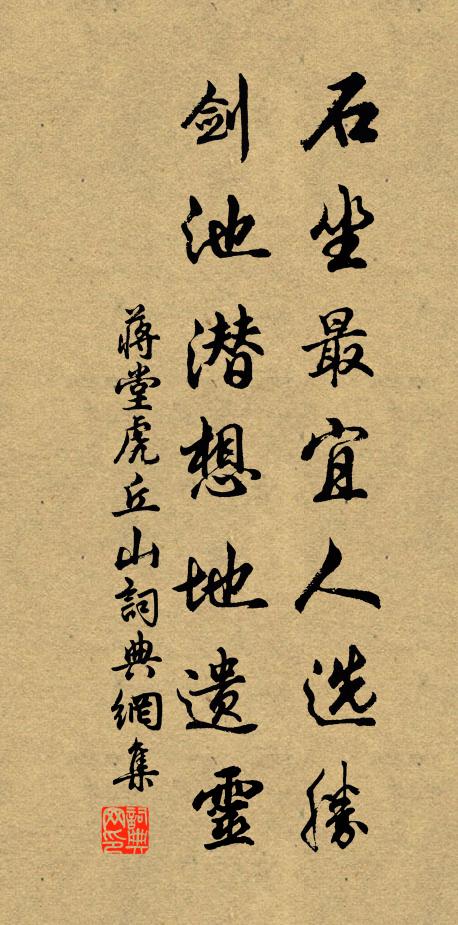 石坐最宜人选勝
剑池潜想地遗靈
蒋堂虎丘山詞典網集
詞典网印